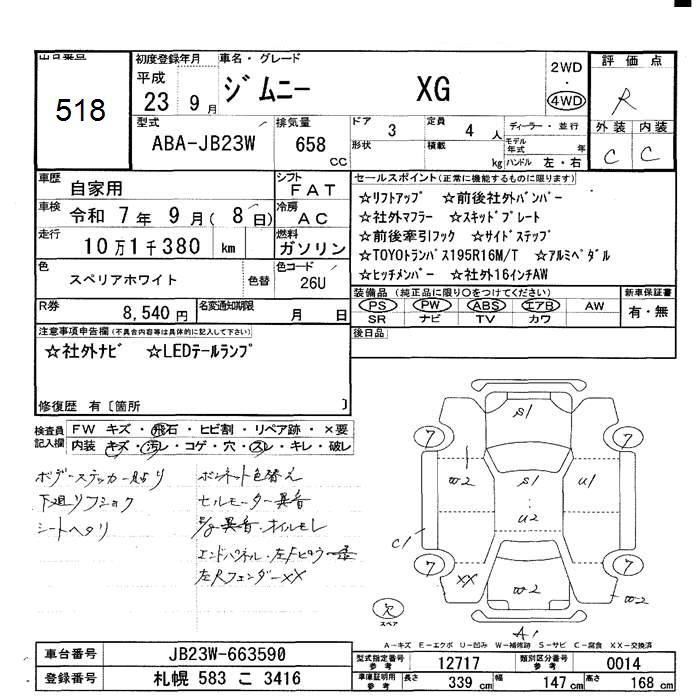 518
初度登録年月 車名・グレード
平成 23 年 9 月 ジムニー XG
2WD
・
4WD
評価点
R
型式 ABA-JB23W
排気量 658 CC
ドア 3 定員 4 人
形状 積載 kg
ディーラー・並行
モデル年式 年
ハンドル 左・右
外装 内装
C C
車歴 自家用
車検 令和 7 年 9 月 ( 8 日)
走行 10万1千380 km
色 スペリアホワイト 色替
シフト FAT
冷房 AC
燃料 ガソリン
色コード 26U
セールスポイント(正常に機能するものに限ります)
☆リフトアップ ☆前後社外バンパー
☆社外マフラー ☆スキッドプレート
☆前後牽引フック ☆サイドステップ
☆TOYOトランパス195R16M/T ☆アルミペダル
☆ヒッチメンバー ☆社外16インチAW
R券 8,540円 名変通知期限 月 日
装備品 (純正品に限り○をつけてください)
PS PW ABS エアB AW
SR ナビ TV カワ
新車保証書
有・無
後日品
注意事項申告欄(不具合内容等は具体的に記入して下さい)
☆社外ナビ ☆LEDテールランプ
修復歴 有〔箇所 〕
検査員記入欄
FW キズ・飛石・ヒビ割・リペア跡・×要
内装 キズ・汚レ・コゲ・穴・スレ・キレ・破レ
ボデーステッカー貼り ボンネット色替え
下廻りフショク セルモーター異音
シートヘタリ E/g異音・オイルモレ
エンドパネル・左Fピラー
左RフェンダーXX
S1
7 7
W2 S1 U1
U2
C1
7 7
XX W2 W2
A1
欠
スペア
A-キズ E-エクボ U-凹み W-補修跡 S-サビ C-腐食 XX-交換済
車台番号 JB23W-663590
登録番号 札幌 583 こ 3416
型式指定番号 参考 12717 類別区分番号 参考 0014
車庫証明用 参考 長さ 339 cm 幅 147 cm 高さ 168 cm